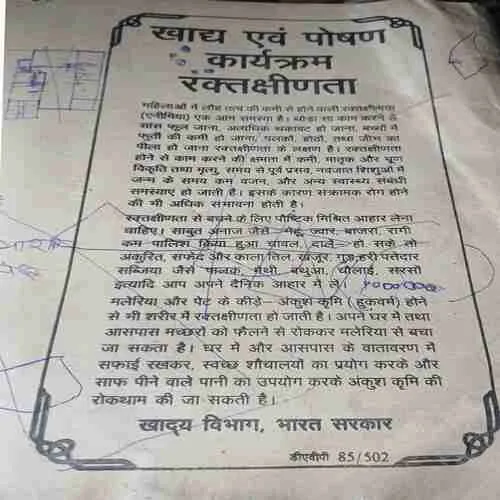 खाद्य एवं पोषण
कार्यक्रम
रक्तक्षीणता
महिलाओं में लौह तत्व की कमी से होने वाली रक्तक्षीणता
(एनीमिया) एक आम समस्या है। थोड़ा सा काम करने से
सांस फूल जाना, अत्यधिक थकावट हो जाना, बच्चों में
फुर्ती की कमी हो जाना, पलकों, होठों, तथा जीभ का
पीला हो जाना रक्तक्षीणता के लक्षण है। रक्तक्षीणता
होने से काम करने की क्षमता में कमी, मातृक और भ्रूण
विकृति तथा मृत्यु, समय से पूर्व प्रसव, नवजात शिशुओं में
जन्म के समय कम वजन, और अन्य स्वास्थ्य संबंधी
समस्याएं हो जाती है। इसके कारण संक्रामक रोग होने
की भी अधिक संभावना होती है।
रक्तक्षीणता से बचने के लिए पौष्टिक मिश्रित आहार लेना
चाहिए। साबुत अनाज जैसे गेहूं, ज्वार, बाजरा, रागी
कम पालिश किया हुआ चावल, दालें हो सके तो
अंकुरित, सफेद और काला तिल, खजूर, गुड़ हरी पत्तेदार
सब्जियां जैसे पालक, मेथी, बथुआ, चौलाई, सरसों
इत्यादि आप अपने दैनिक आहार में लें।
मलेरिया और पेट के कीड़े – अंकुश कृमि (हुकवर्म) होने
से भी शरीर में रक्तक्षीणता हो जाती है। अपने घर में तथा
आसपास मच्छरों को फैलने से रोककर मलेरिया से बचा
जा सकता है। घर में और आसपास के वातावरण में
सफाई रखकर, स्वच्छ शौचालयों का प्रयोग करके और
साफ पीने वाले पानी का उपयोग करके अंकुश कृमि की
रोकथाम की जा सकती है।
खाद्य विभाग, भारत सरकार
डीएवीपी 85/502